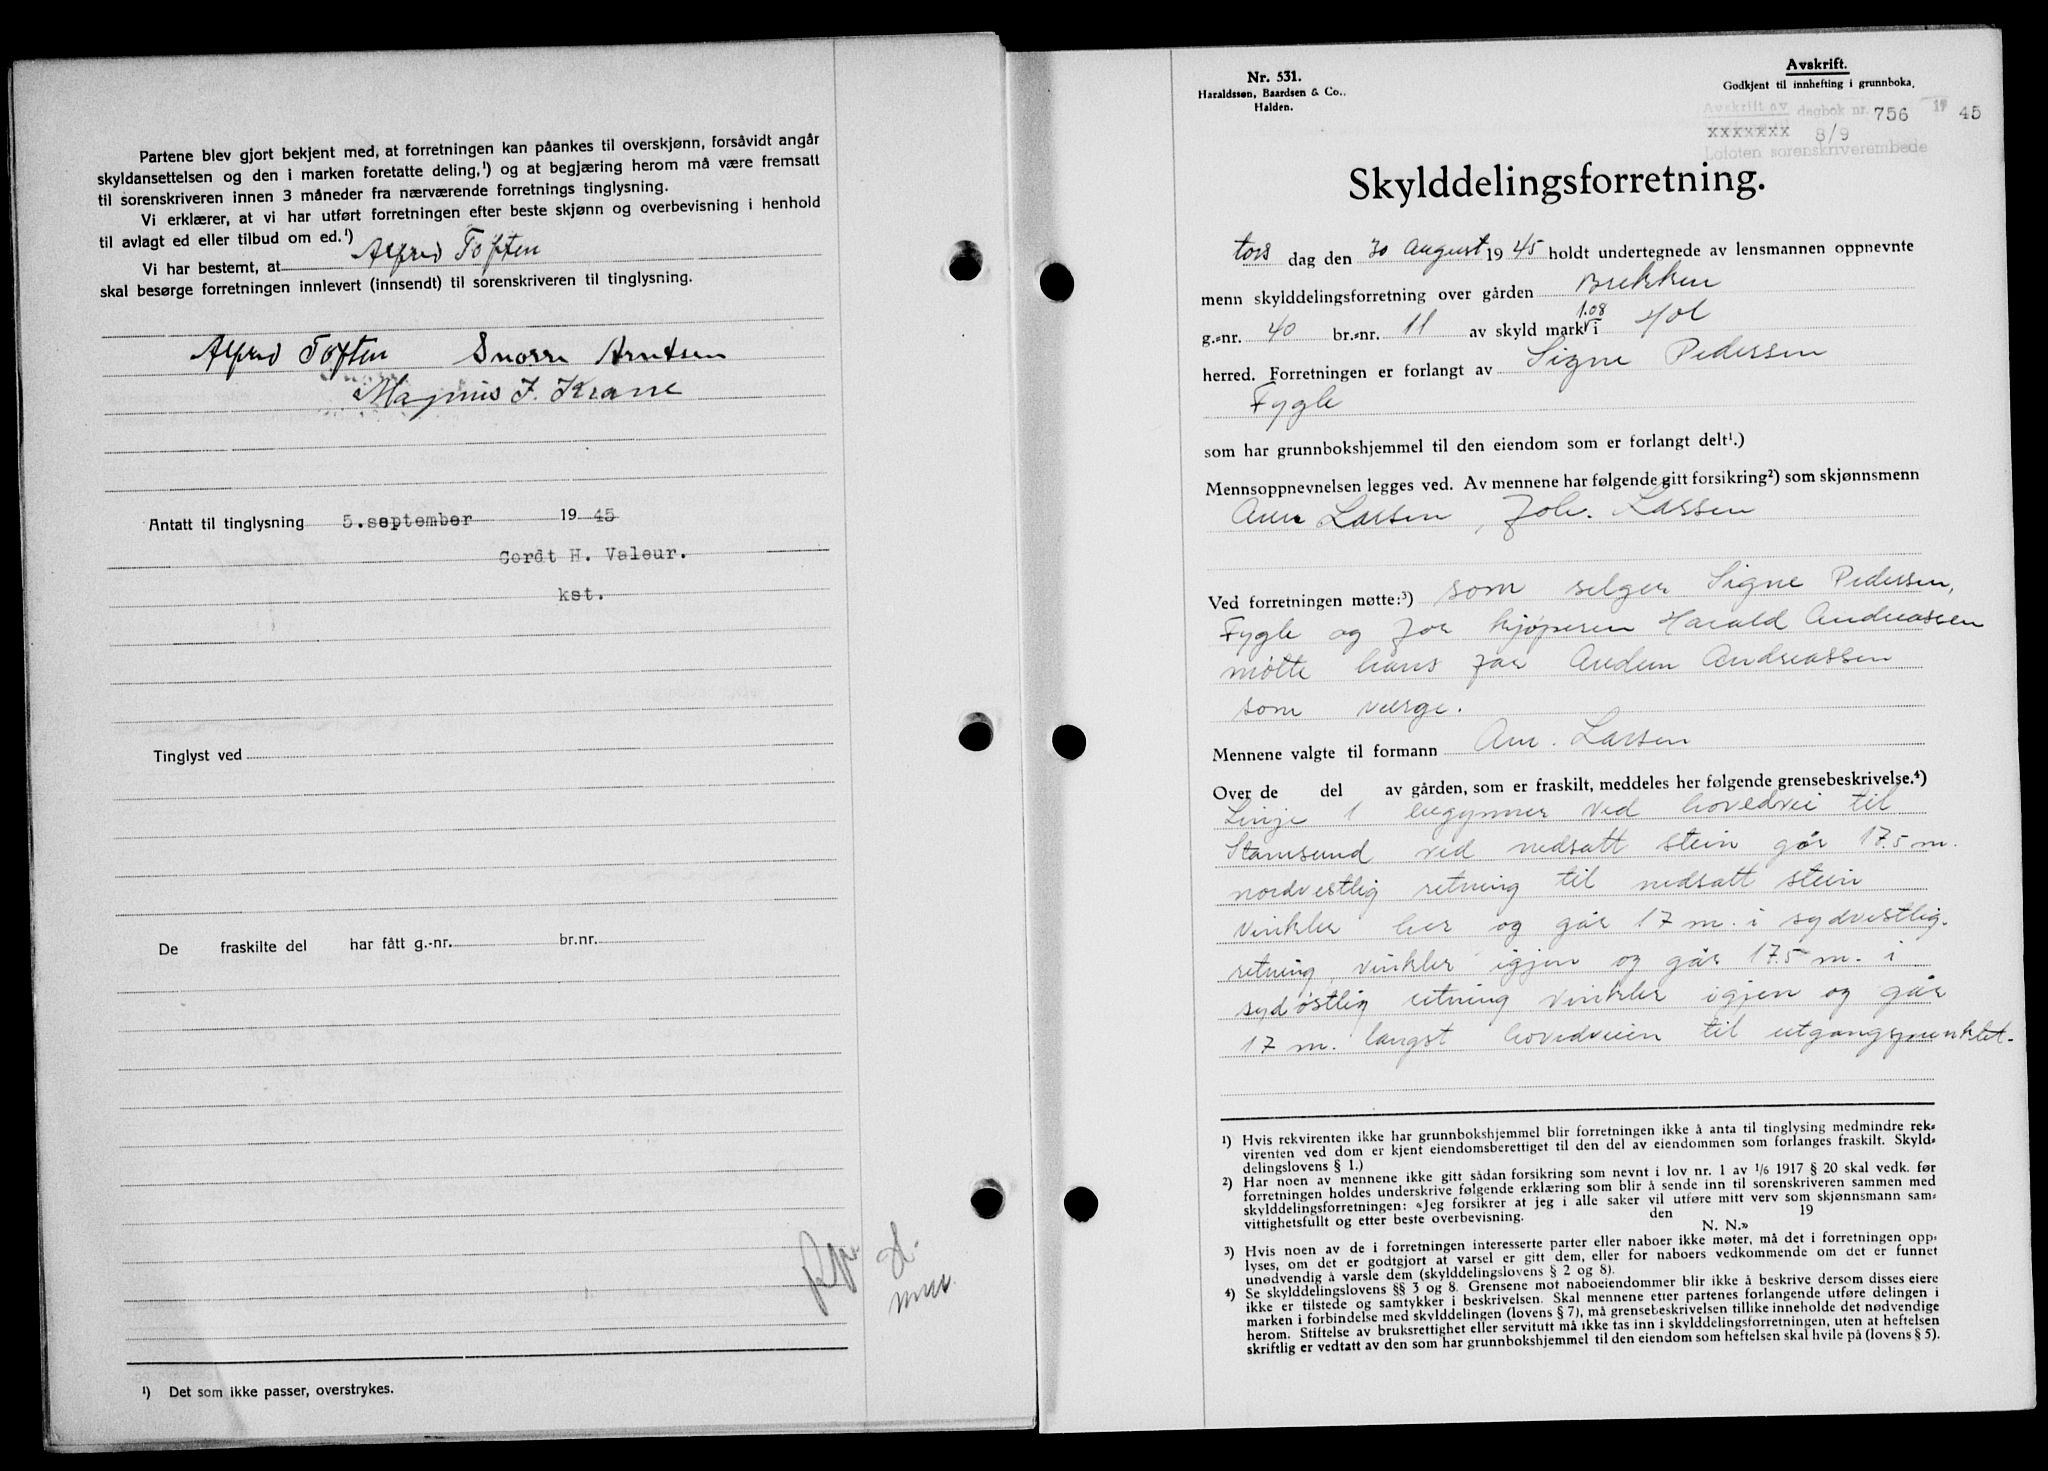 Partene blev gjort bekjent med, at forretningen kan påankes til overskjønn, forsåvidt angår
skyldansettelsen og den i marken foretatte deling,¹) og at begjæring herom må være fremsatt
til sorenskriveren innen 3 måneder fra nærværende forretnings tinglysning.
Vi erklærer, at vi har utført forretningen efter beste skjønn og overbevisning i henhold
til avlagt ed eller tilbud om ed.¹)
Vi har bestemt, at Alfred Toften
skal besørge forretningen innlevert (innsendt) til sorenskriveren til tinglysning.
Alfred Toften Snorre Arntsen
Magnus J. Krane
Antatt til tinglysning 5.september 1945
Cordt H. Valeur.
kst.
Tinglyst ved
De fraskilte del har fått g.-nr. br.nr.
¹) Det som ikke passer, overstrykes.
Nr. 531.
Haraldssøn, Baardsen & Co..
Halden.
Avskrift.
Godkjent til innhefting i grunnboka.
Avskrift av dagbok nr. 756 1945
xxxxxxx 8/9
Lofoten sorenskriverembede
Skylddelingsforretning.
tors dag den 30 August 1945 holdt undertegnede av lensmannen oppnevnte
menn skylddelingsforretning over gården Brekken
g.=nr. 40 br.=nr. 11 av skyld mark 1.08 i Hol
herred. Forretningen er forlangt av Signe Pedersen
Fygle
som har grunnbokshjemmel til den eiendom som er forlangt delt¹.)
Mennsoppnevnelsen legges ved. Av mennene har følgende gitt forsikring²) som skjønnsmenn
Larsen, Joh. Larsen
Ved forretningen møtte:³) som selger Signe Pedersen,
Fygle og for kjøperen Harald Andreassen
møtte hans far Andreassen
som verge.
Mennene valgte til formann Larsen
Over de del av gården, som er fraskilt, meddeles her følgende grensebeskrivelse.⁴)
Linje 1 begynner ved hovedvei til
Stamsund ved nedsatt stein går 17.5 m.
nordvestlig retning til nedsatt stein
vinkler her og går 17 m. i sydvestlig.
retning, vinkler igjen og går 17.5 m. i
sydøstlig retning vinkler igjen og går
17 m. langst hovedveien til utgangspunktet.
¹) Hvis rekvirenten ikke har grunnbokshjemmel blir forretningen ikke å anta til tinglysing medmindre rek=
virenten ved dom er kjent eiendomsberettiget til den del av eiendommen som forlanges fraskilt. Skyld=
delingslovens § 1.)
²) Har noen av mennene ikke gitt sådan forsikring som nevnt i lov nr. 1 av 1/6 1917 § 20 skal vedk. før
forretningen holdes underskrive følgende erklæring som blir å sende inn til sorenskriveren sammen med
skylddelingsforretningen: «Jeg forsikrer at jeg i alle saker vil utføre mitt verv som skjønnsmann sam=
vittighetsfullt og etter beste overbevisning. den 19
N. N.»
³) Hvis noen av de i forretningen interesserte parter eller naboer ikke møter, må det i forretningen opp=
lyses, om det er godtgjort at varsel er gitt dem, eller for naboers vedkommende om det er funnet
unødvendig å varsle dem (skylddelingslovens § 2 og 8).
⁴) Se skylddelingslovens §§ 3 og 8. Grensene mot naboeiendommer blir ikke å beskrive dersom disses eiere
ikke er tilstede og samtykker i beskrivelsen. Skal mennene etter partenes forlangende utføre delingen i
marken i forbindelse med skylddelingen (lovens § 7), må grensebeskrivelsen tillike inneholde det nødvendige
herom. Stiftelse av bruksrettighet eller servitutt må ikke tas inn i skylddelingsforretningen, uten at heftelsen
skriftlig er vedtatt av den som har grunnbokshjemmel til den eiendom som heftelsen skal hvile på (lovens § 5).